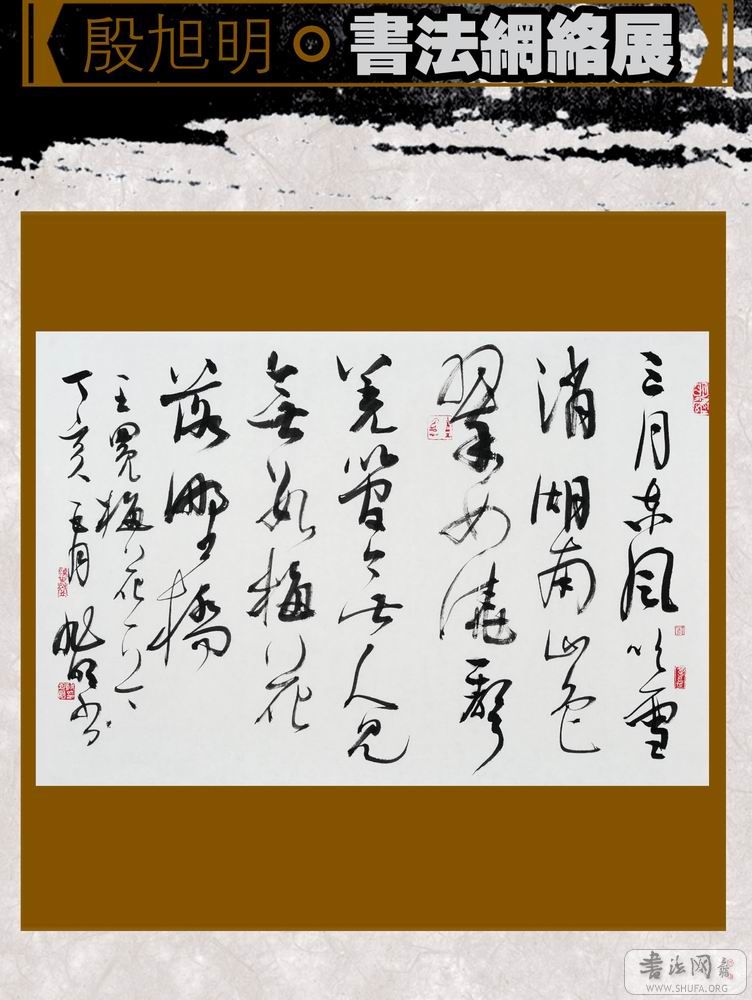 殷旭明。書法網絡展
三月東風吹雪
消湖南山色
翠如澆聲
羌管無人見
無數梅花
落野橋
王冕梅花一首
丁亥三月旭明書
書法网
WWW.SHUFA.ORG